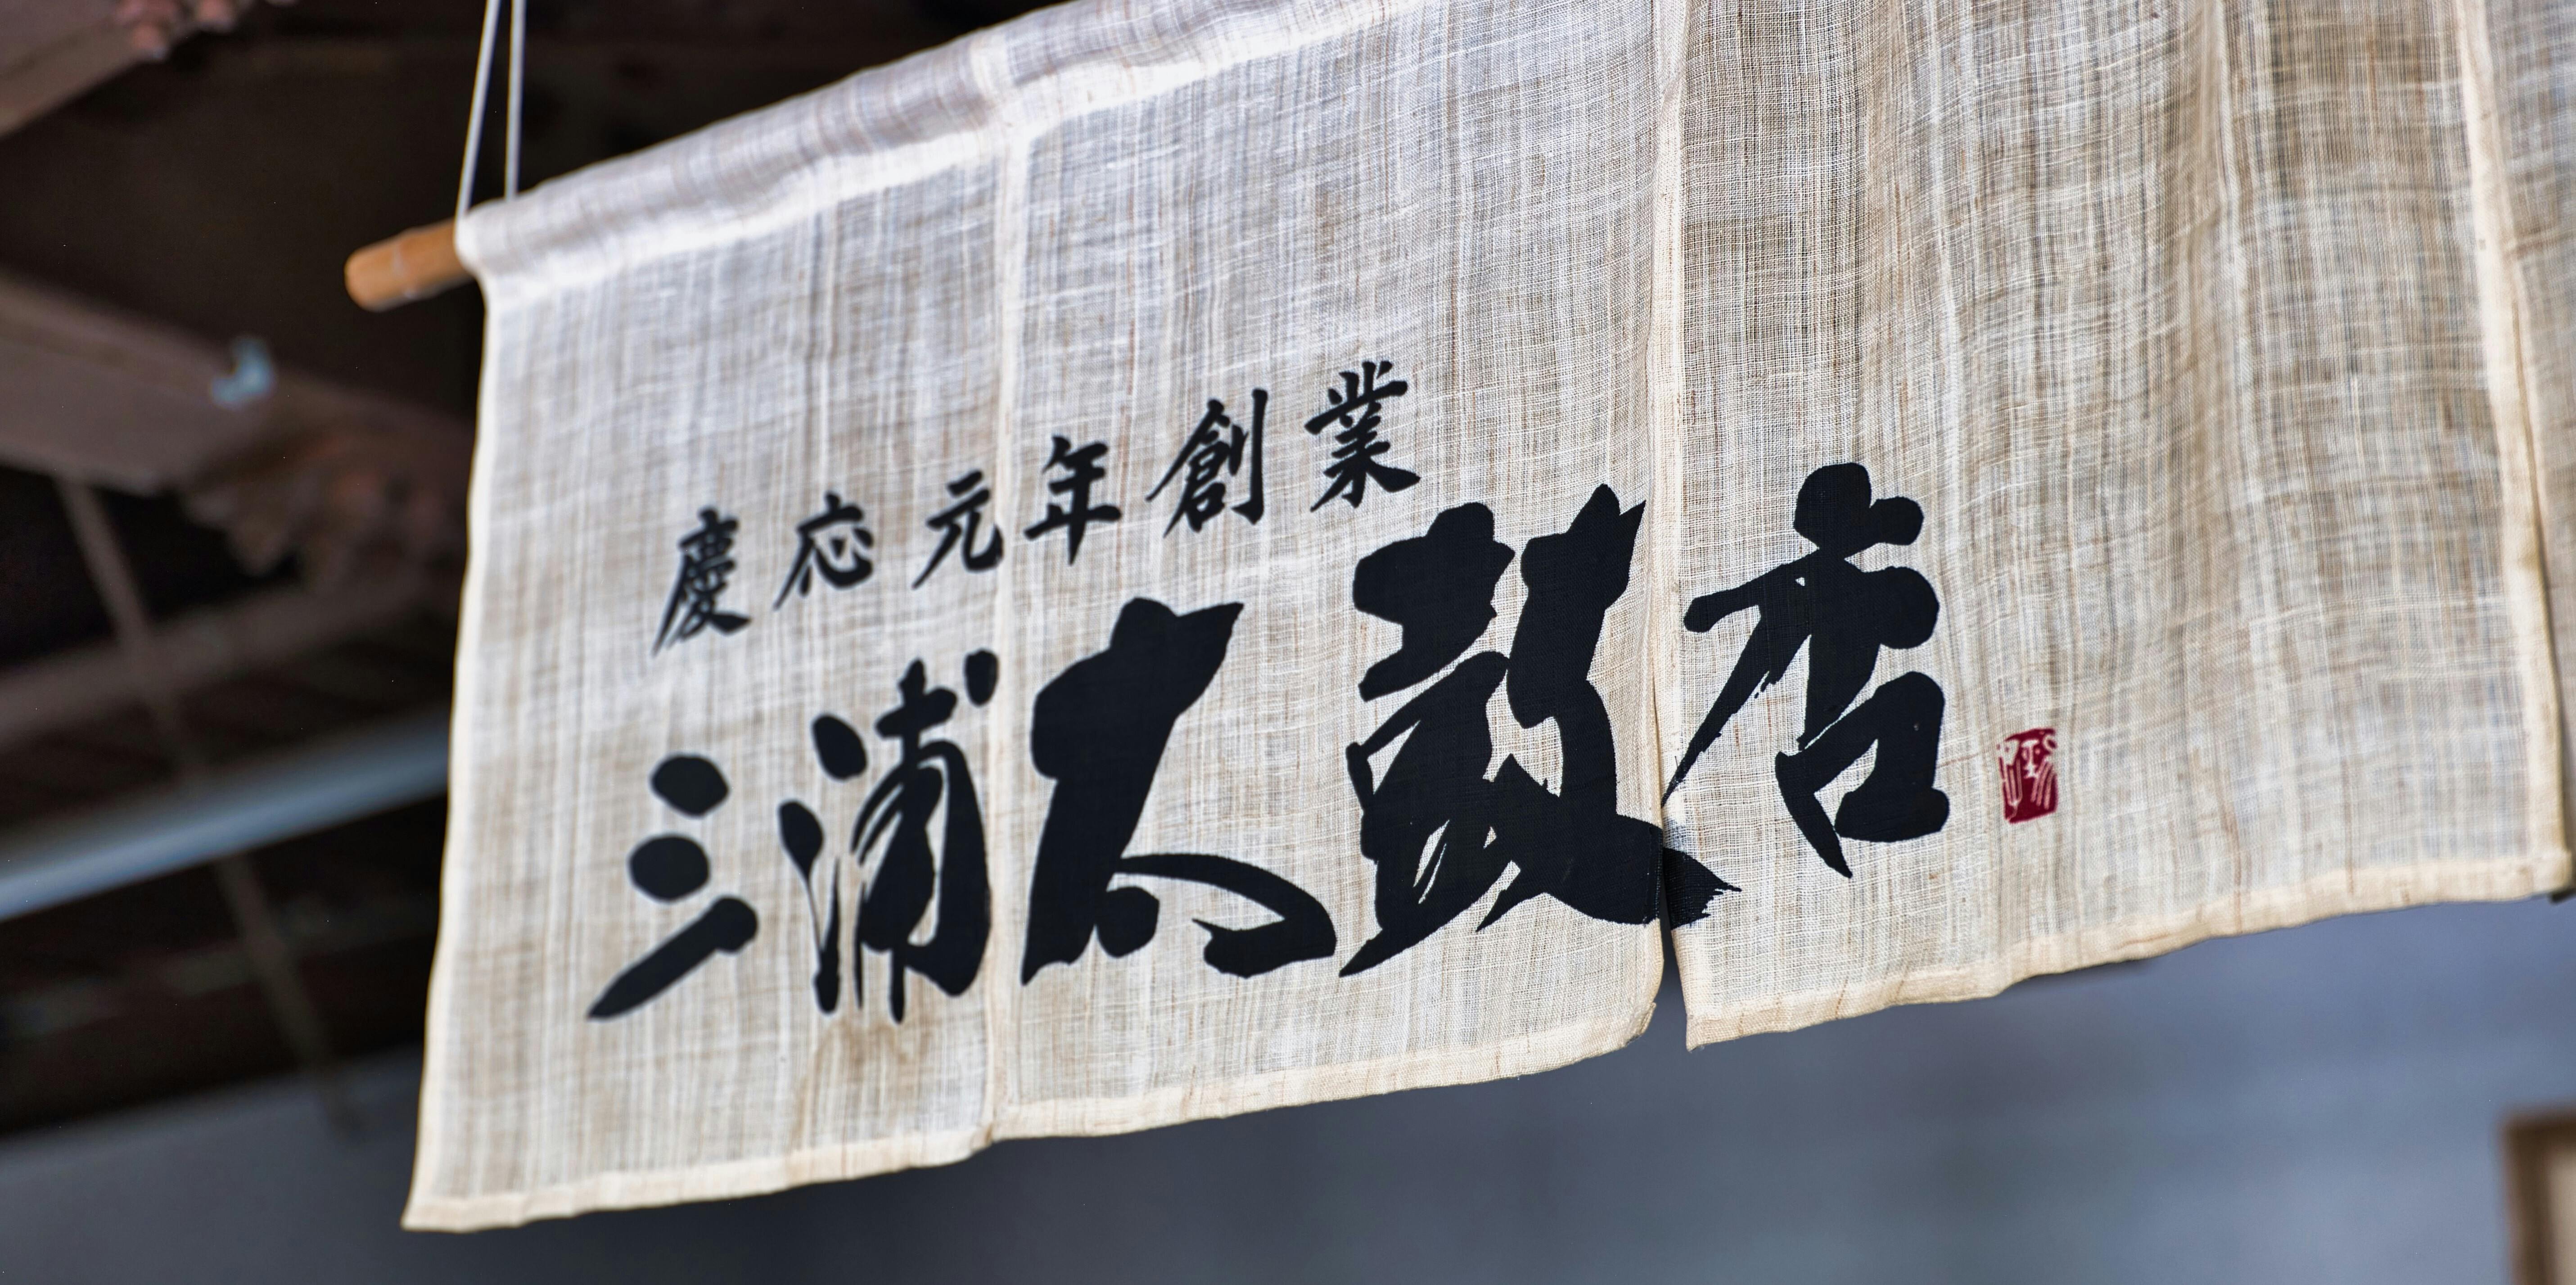 慶応元年創業
三浦太鼓店